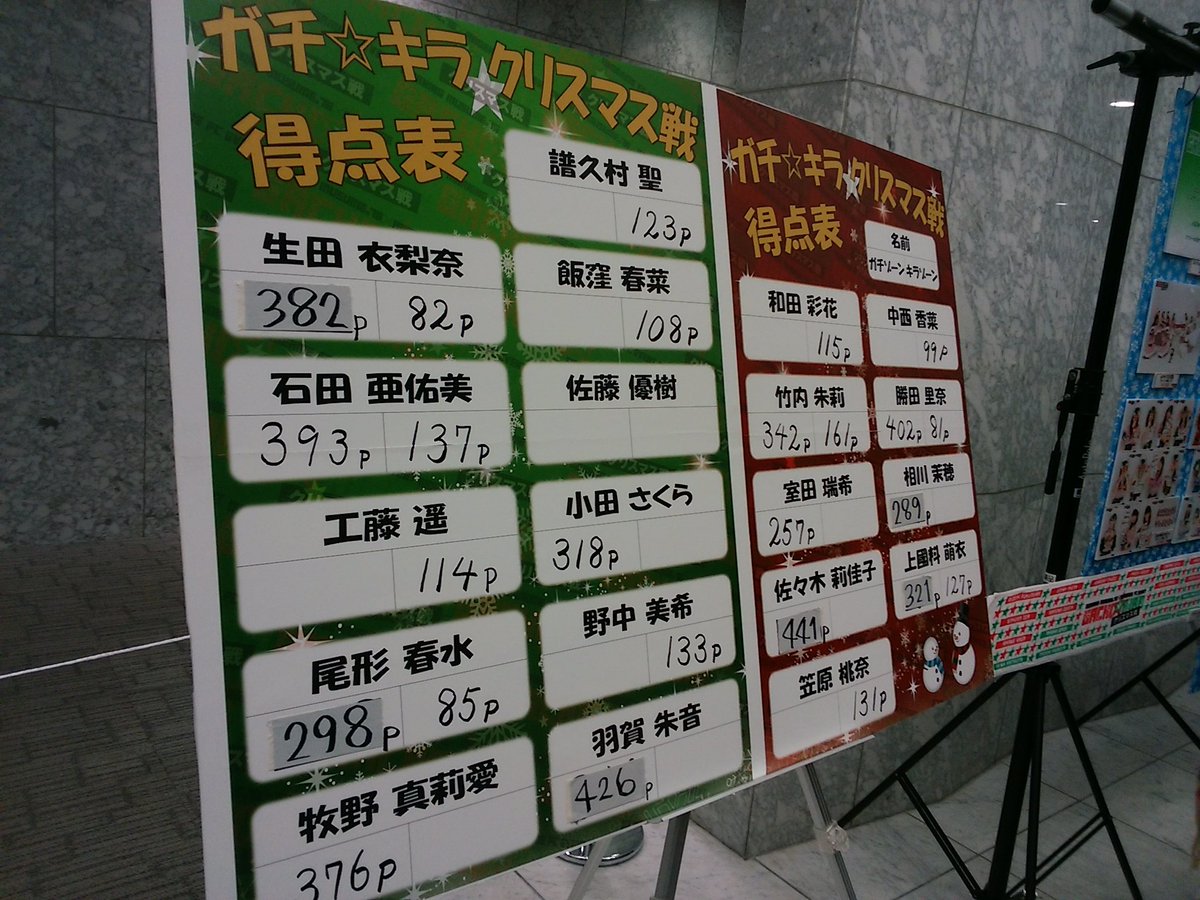 ガチ☆キラ クリスマス戦
得点表
譜久村 聖
123p
生田 衣梨奈
382p 82p
飯窪 春菜
108p
石田 亜佑美
393p 137p
佐藤 優樹
工藤 遥
114p
小田 さくら
318p
尾形 春水
298p 85p
野中 美希
133p
牧野 真莉愛
376p
羽賀 朱音
426p
ガチ☆キラ クリスマス戦
得点表
名前
ガチゾーン キラゾーン
和田 彩花
115p
中西 香菜
99p
竹内 朱莉
342p 161p
勝田 里奈
402p 81p
室田 瑞希
257p
相川 茉穂
289p
佐々木 莉佳子
441p
上國料 萌衣
321p 127p
笠原 桃奈
131p